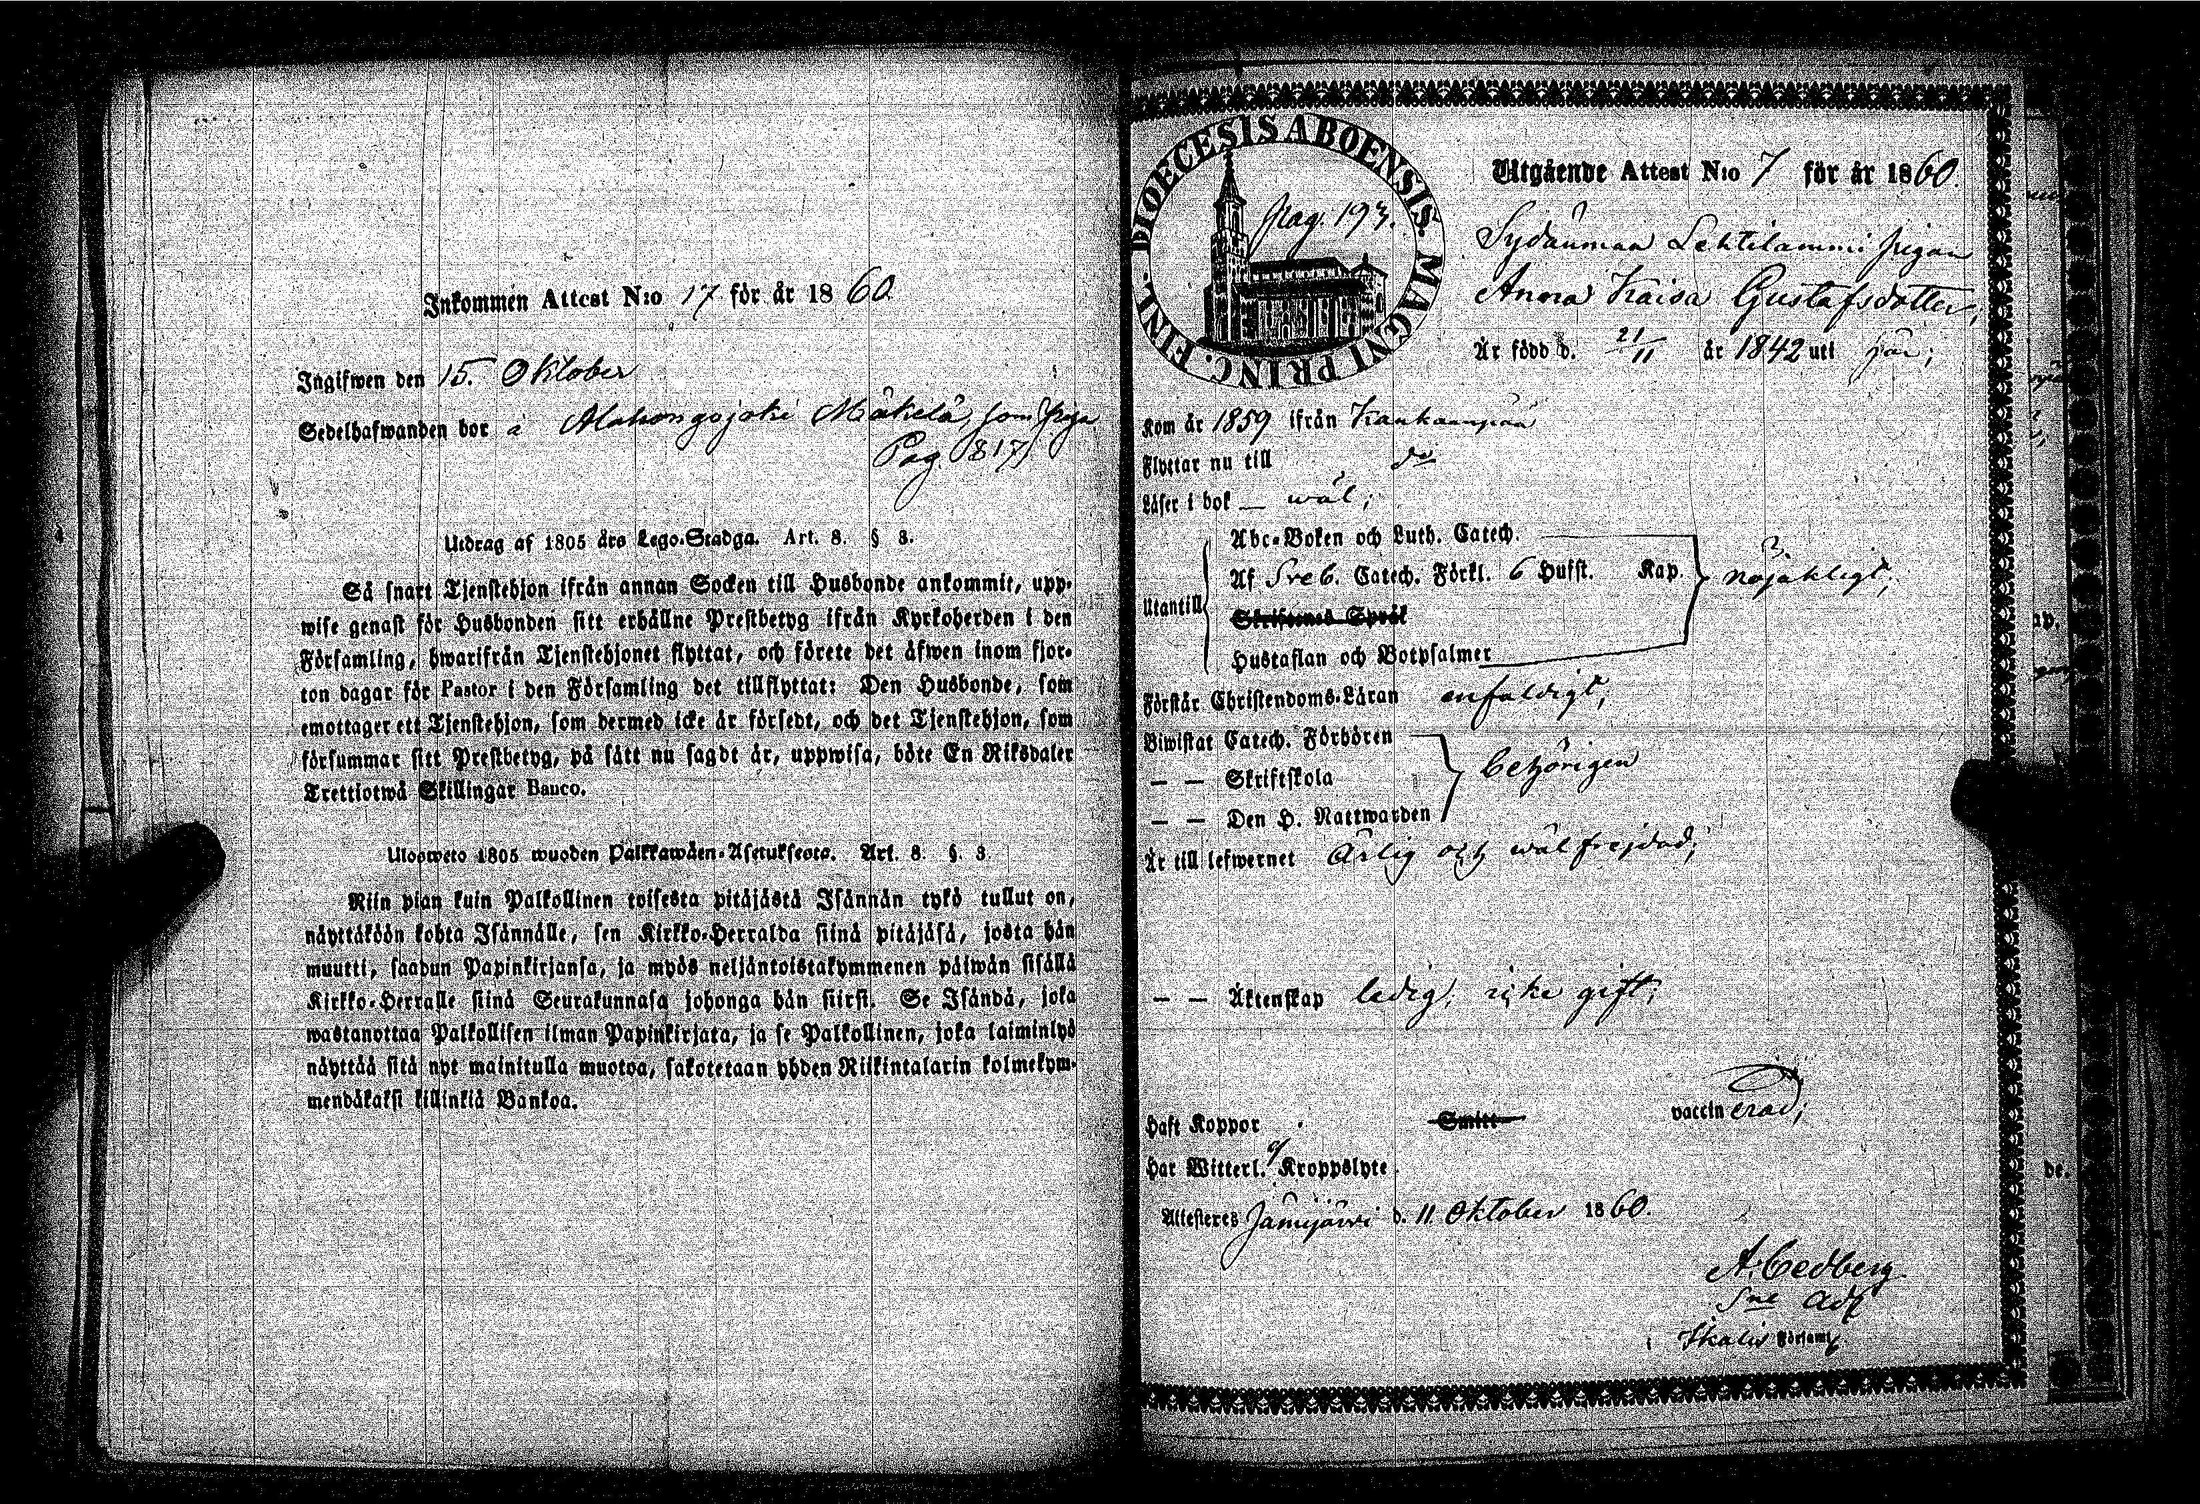 Inkommen Attest N:o 17 för år 1860
Ingifwen den 15. Oktober
Sedelhafwanden bor å Alahongojoki Mäkelä, som piga
Pag. 817
Utdrag af 1805 års Lego-Stadga. Art. 8. § 3.
Så snart Tjenstehjon ifrån annan Socken till Husbonde ankommit, upp-
wise genast för Husbonden sitt erhållne Prestbetyg ifrån Kyrkoherden i den
Församling, hwarifrån Tjenstehjonet flyttat, och förete det äfwen inom fjor-
ton dagar för Pastor i den Församling det tillflyttat: Den Husbonde, som
emottager ett Tjenstehjon, som dermed icke är försedt, och det Tjenstehjon, som
försummar sitt Prestbetyg, på sätt nu sagdt är, uppwisa, böte En Riksdaler
Trettiotwå Skillingar Banco.
Ulosweto 1805 wuoden Palkkawäen-Asetuksesta. Art. 8. §. 3.
Niin pian kuin Palkollinen toisesta pitäjästä Isännän tykö tullut on,
näyttäköön kohta Isännälle, sen Kirkko-Herralda siinä pitäjäsä, josta hän
muutti, saadun Papinkirjansa, ja myös neljäntoistakymmenen päiwän sisällä
Kirkko-Herralle siinä Seurakunnasa johonga hän siirsi. Se Isändä, joka
wastanottaa Palkollisen ilman Papinkirjata, ja se Palkollinen, joka laiminlyö
näyttää sitä nyt mainitulla muotoa, sakotetaan yhden Riikintalarin kolmekym-
mendäkaksi killinkiä Bankoa.
DIOECESIS ABOENSIS. MAGNI PRINC. FINL.
pag. 193.
Utgående Attest N:o 7 för år 1860.
Sydänmaa Lehtilammi pigan
Anna Kaisa Gustafsdotter,
Är född d. 21/11 år 1842 uti här;
Kom år 1859 ifrån Kankaanpää
Flyttar nu till do
Läser i bok — wäl;
Utantill
Abc-Boken och Luth. Catech.
Af Sveb. Catech. Förkl. 6 Hufst. Kap.
nöjakligt;
Skriftenes Språk
Hustaflan och Botpsalmer
Förstår Christendoms-Läran enfaldigt;
Biwistat Catech. Förhören
— — Skriftskola
behörigen
— — Den H. Nattwarden
Är till lefwernet Ärlig och wälfrejdad;
— — Äktenskap ledig, icke gift;
Haft Koppor Smitt vaccinerad;
Har Witterl. ej Kroppslyte
Attesteres Jämijärwi d. 11 Oktober 1860.
A. Cedberg
Sne Adj
i Ikalis Församl.